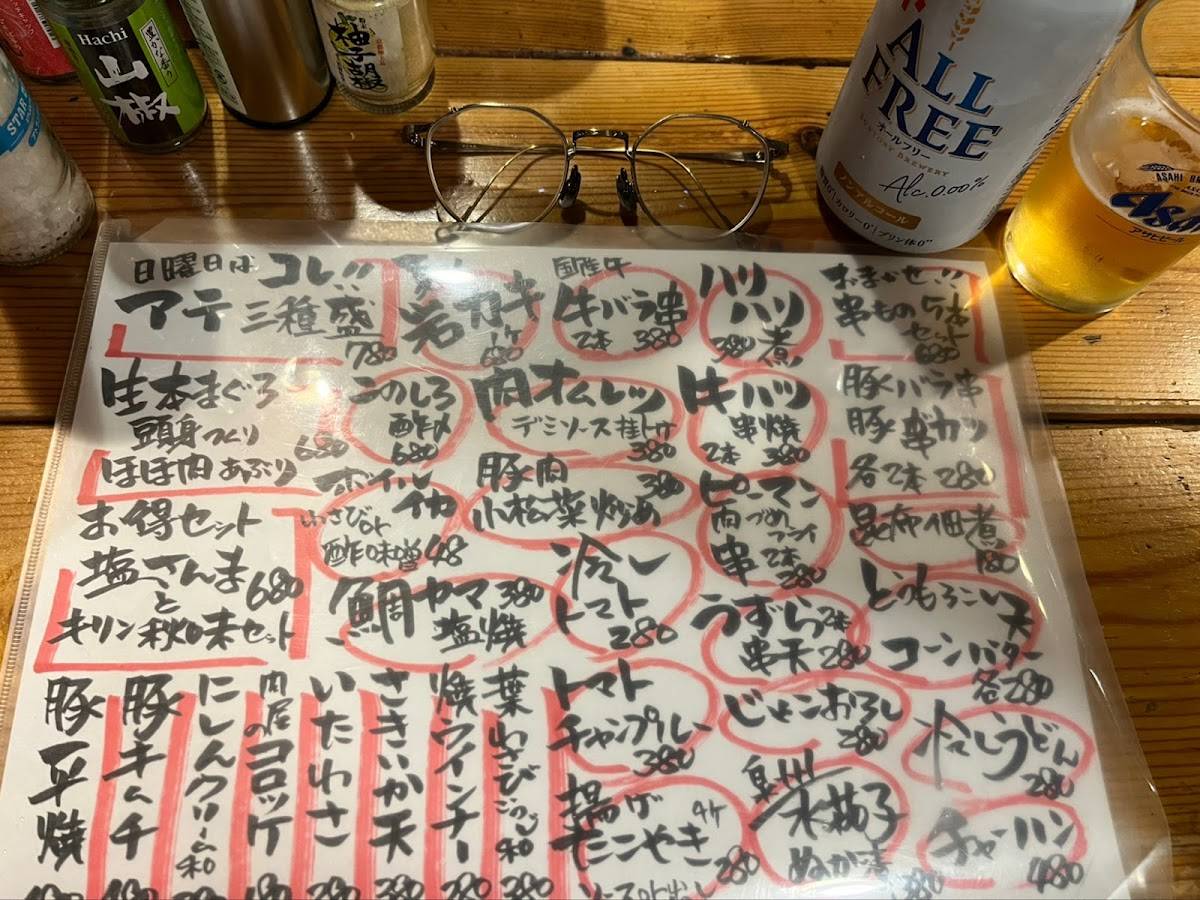 Hachi
山椒
柚子胡椒
STAR
ALL
FREE
オールフリー
SUNTORY BREWERY
Alc.0.00%
ノンアルコール
カロリー0 プリン体0
ASAHI
Asahi
アサヒビール
日曜日は コレッ
アテ 三種盛
780
岩ガキ
1ケ
680
国産牛
牛バラ串
2本 380
ハリ
ハリ
煮
380
おまかせ!!
串もの5本
セット
680
生本まぐろ
頭身つくり
680
ほほ肉あぶり
このしろ
酢〆
680
肉オムレツ
デミソース掛け
380
牛ハツ
串焼
2本 380
豚バラ串
豚串カツ
各2本 280
お得セット
塩さんま
680
と
キリン秋味セット
ボイル
イカ
わさびor
酢味噌
豚肉
380
小松菜炒め
ピーマン
肉づめ
フライ
串2本
280
昆布佃煮
180
鯛カマ 380
塩焼
冷し
トマト
280
うずら2本
串天 280
とうもろこし天
コーンバター
各280
豚平焼
豚キムチ
にしんクリーム和
肉屋のコロッケ
180
いたわさ
280
さきいか天
380
焼ウインナー
380
葉わさび
和
380
トマト
チャンプルー
380
じゃこおろし
280
冷しうどん
280
揚げ
モニやき
4ケ
280
泉州
水茄子
ぬか漬
380
チャーハン
480